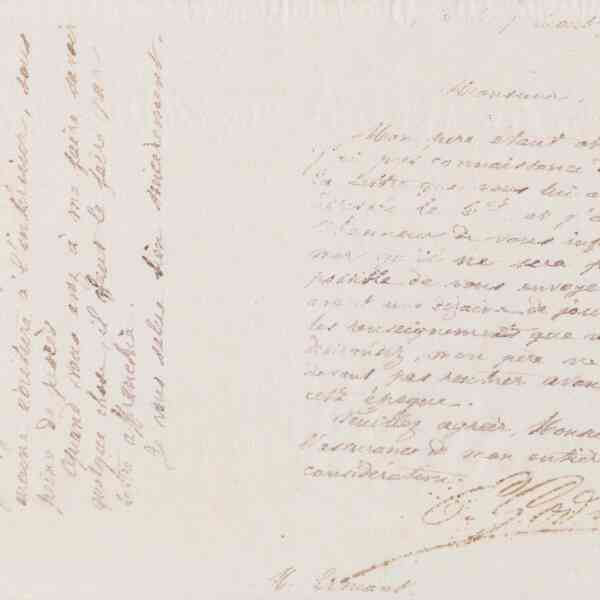 Monsieur,
Mon père étant ab
j'ai pris connaissance
la lettre que vous lui a
le 6 ct et j'
l'honneur de vous inf
mer qu'il ne sera p
possible de vous envoye
avant une dizaine de jou
les renseignements que v
désirez, mon père ne
devant pas rentrer avan
cette époque.
Veuillez agréer, Monsi
l'assurance de mon entière
considération.
M.
à l'intérieur, sous
peine de procès
Quand vous avez à me faire savoir
quelque chose, il faut le faire par
lettre affranchie.
Je vous salue bien sincèrement.